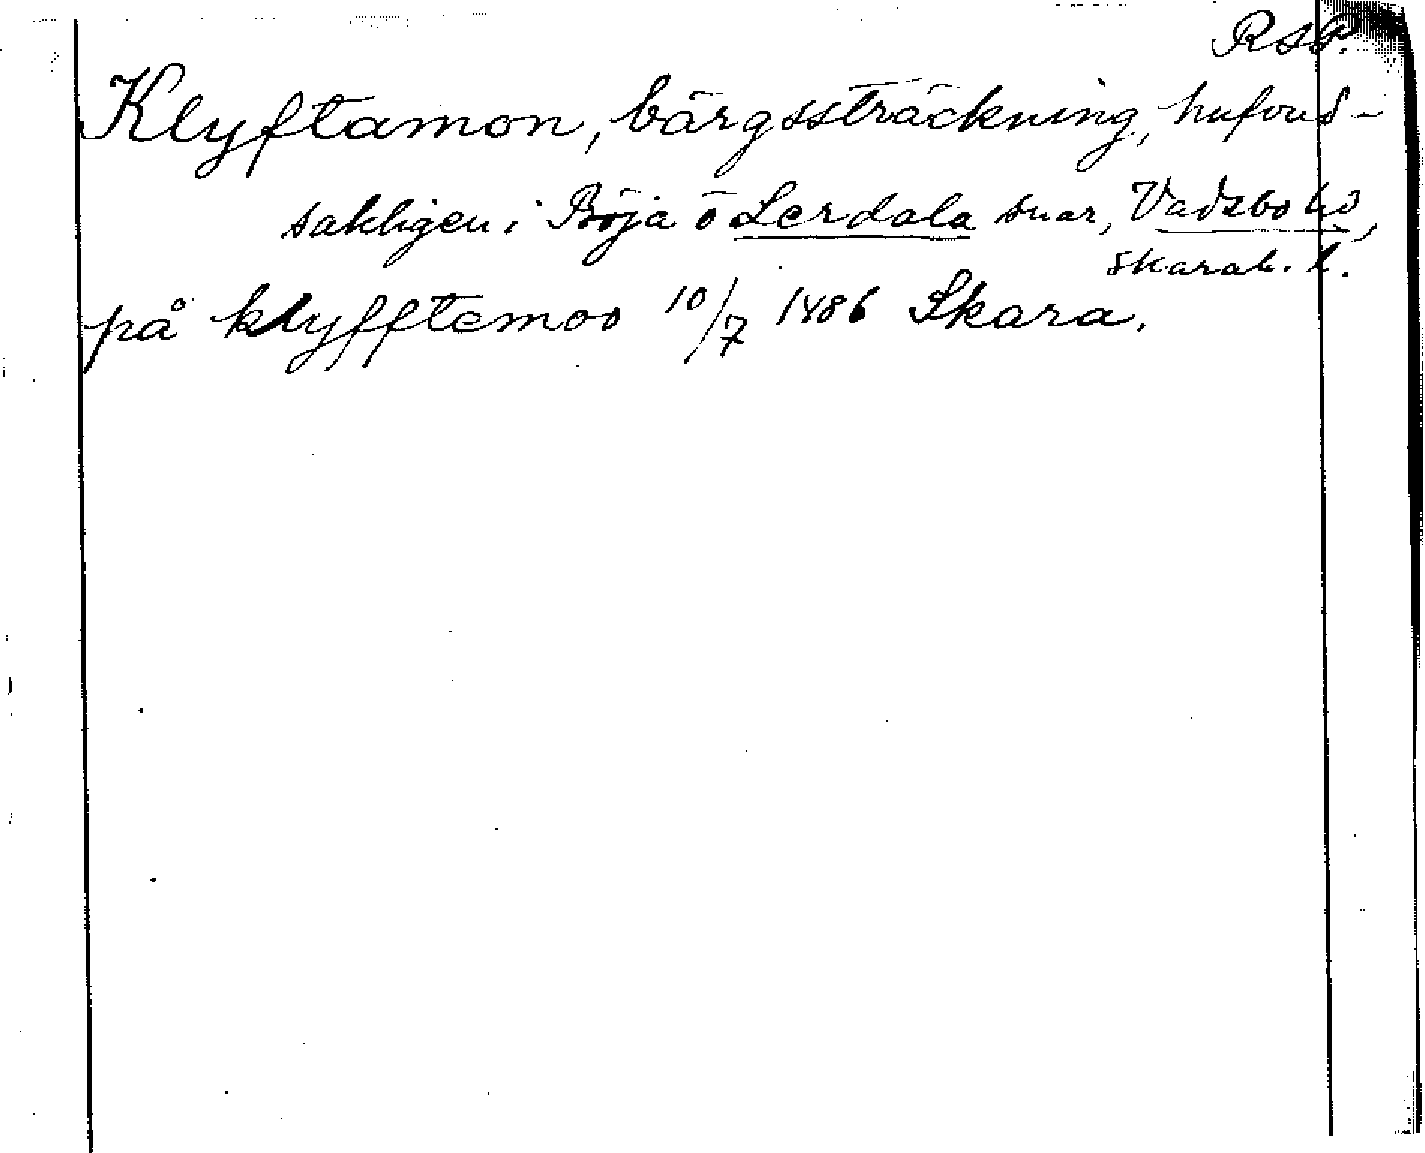 RSP.
Klyftamon, bärgssträckning, hufvud-
sakligen i Böja o Lerdala snar, Vadsbo hd,
Skarab. l.
på klyfftemoo 10/7 1486 Skara.